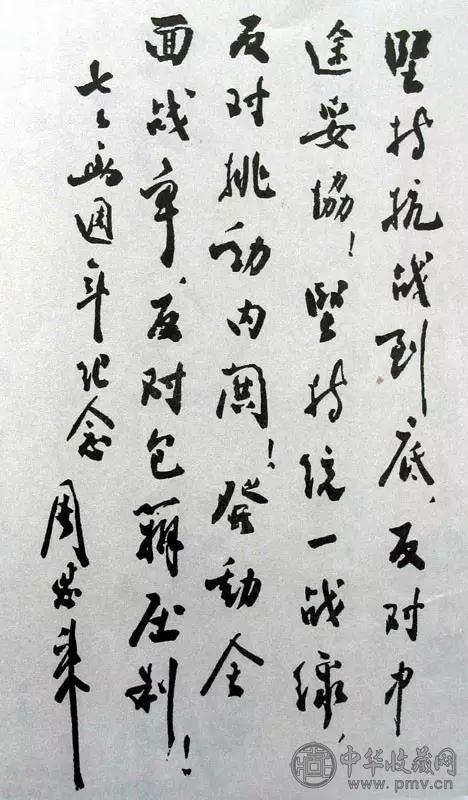 坚持抗战到底、反对中
途妥協！坚持统一战線、
反对挑动内鬨！发動全
面战争、反对包辦压制！
七七两週年纪念
周恩来
中华收藏网
www.pmv.cn